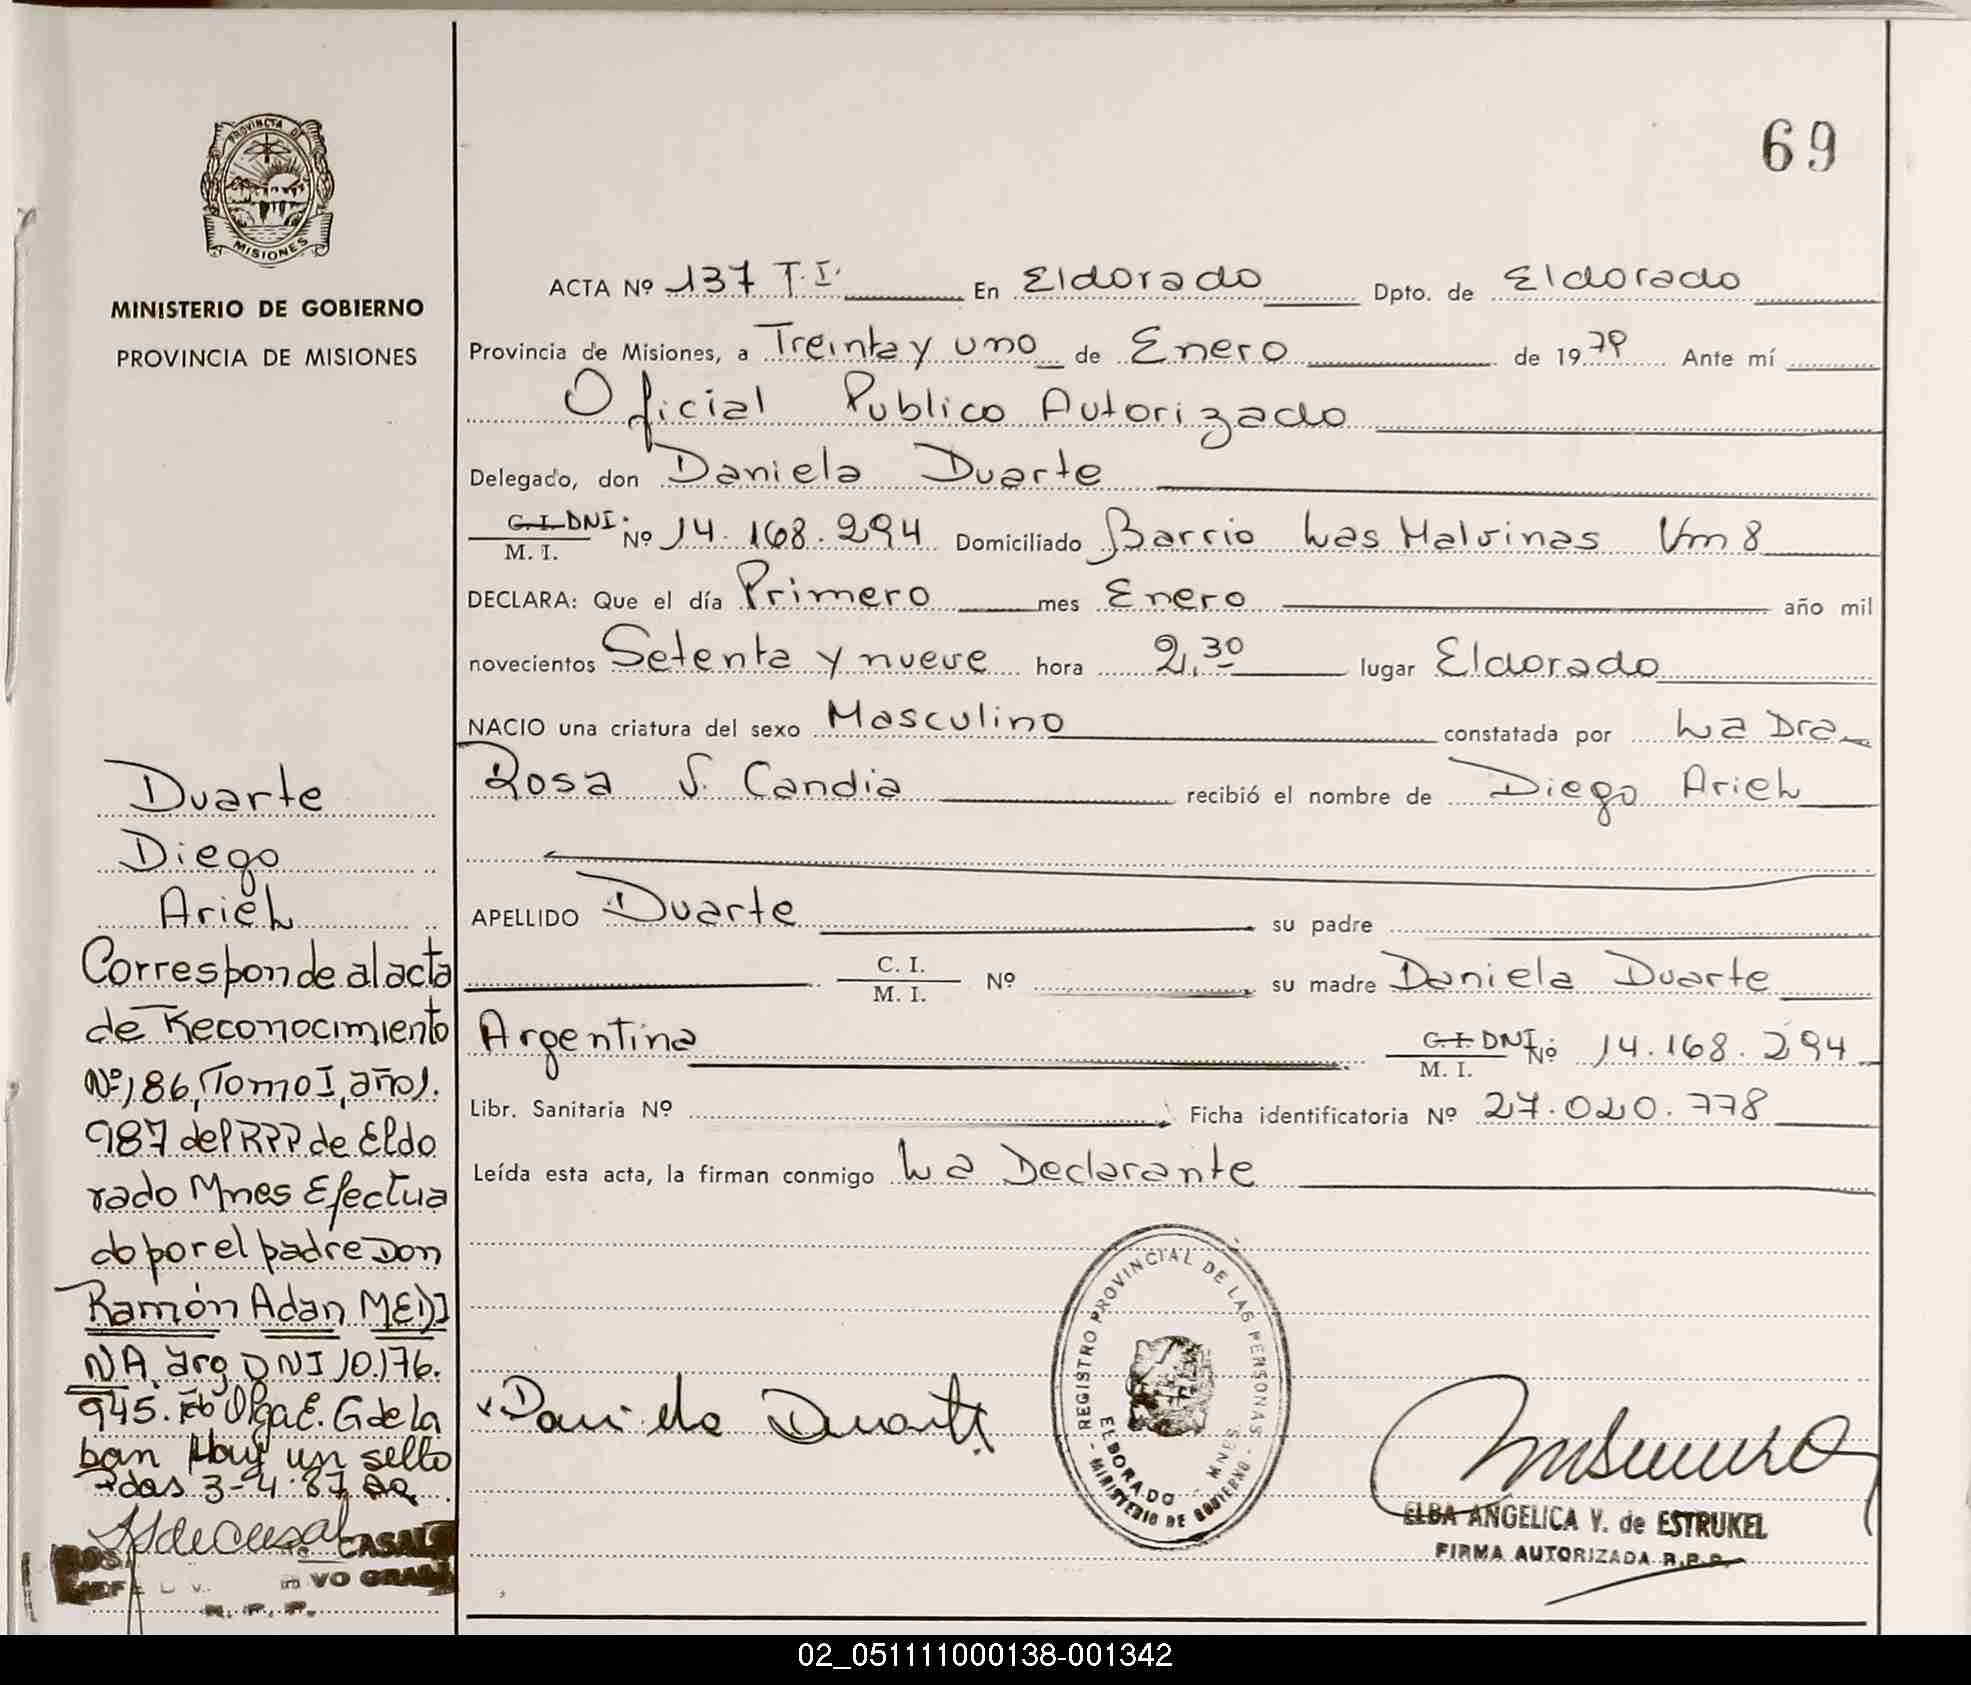 69
PROVINCIA DE
MISIONES
MINISTERIO DE GOBIERNO
PROVINCIA DE MISIONES
ACTA Nº 137 T.I. En Eldorado Dpto. de Eldorado
Provincia de Misiones, a Treinta y uno de Enero de 1979 Ante mí
Oficial Publico Autorizado
Delegado, don Daniela Duarte
C.I. DNI. Nº 14.168.294 Domiciliado Barrio Las Malvinas Km 8
M. I.
DECLARA: Que el día Primero mes Enero año mil
novecientos Setenta y nueve hora 2,30 lugar Eldorado
NACIO una criatura del sexo Masculino constatada por La Dra
Rosa S. Candia recibió el nombre de Diego Ariel
APELLIDO Duarte su padre
C. I.
M. I. Nº su madre Daniela Duarte
Argentina C.I. DNI Nº 14.168.294
M. I.
Libr. Sanitaria Nº Ficha identificatoria Nº 27.020.778
Leída esta acta, la firman conmigo La Declarante
Duarte
Diego
Ariel
Corresponde al acta
de Reconocimiento
Nº 186, Tomo I, año 1.
987 del RPP de Eldo
rado Mnes Efectua
do por el padre Don
Ramón Adan MEDI
NA, arg DNI 10.176.
945. Fdo Olga E. G de La
ban Hay un sello
Pdas 3-4-87
CASAL
R. P. P.
Daniela Duarte
REGISTRO PROVINCIAL DE LAS PERSONAS
ELDORADO - MNES.
- MINISTERIO DE GOBIERNO -
ELBA ANGELICA V. de ESTRUKEL
FIRMA AUTORIZADA R.P.P.
02_051111000138-001342